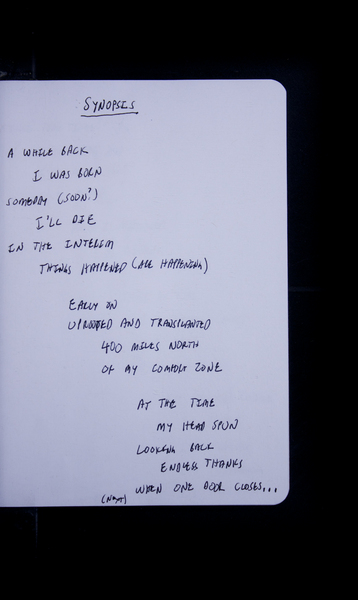 SYNOPSIS
A WHILE BACK
I WAS BORN
SOMEDAY (SOON?)
I'LL DIE
IN THE INTERIM
THINGS HAPPENED (ARE HAPPENING)
EARLY ON
UPROOTED AND TRANSPLANTED
400 MILES NORTH
OF MY COMFORT ZONE
AT THE TIME
MY HEAD SPUN
LOOKING BACK
ENDLESS THANKS
WHEN ONE DOOR CLOSES...
(NEXT)